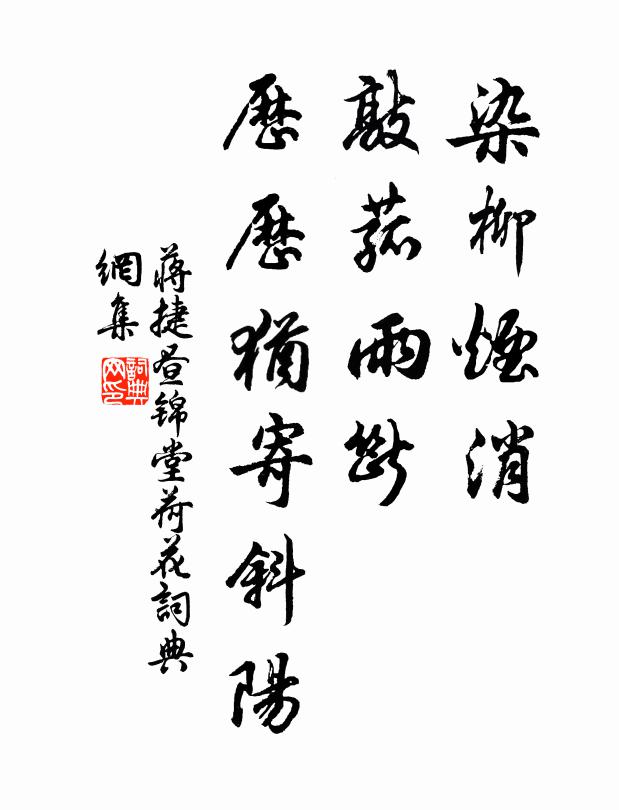 染柳煙消
敲菰雨斷
歷歷猶寄斜陽
蔣捷昼锦堂荷花詞典
網集
詞典
网印